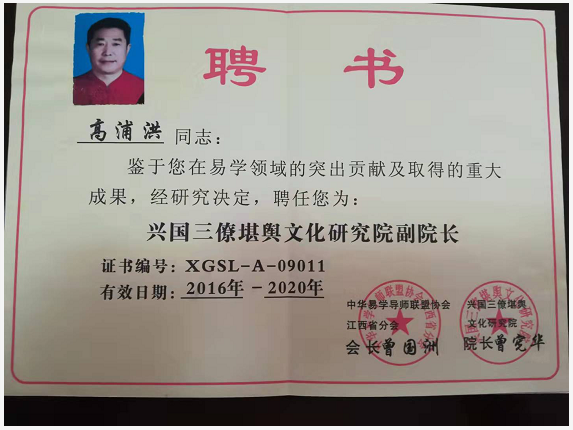 聘书
高浦洪 同志：
鉴于您在易学领域的突出贡献及取得的重大
成果，经研究决定，聘任您为：
兴国三僚堪舆文化研究院副院长
证书编号：XGSL-A-09011
有效日期：2016年－2020年
中华易学导师联盟协会
江西省分会
会长曾国洲
兴国三僚堪舆
文化研究院
院长曾宪华